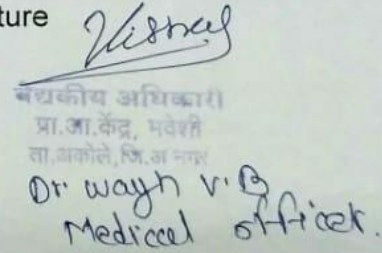 ture
वैद्यकीय अधिकारी
प्रा.आ.केंद्र, मवेशी
ता.अकोले,जि.अ नगर
Dr. wagh V.B
Medical officer.